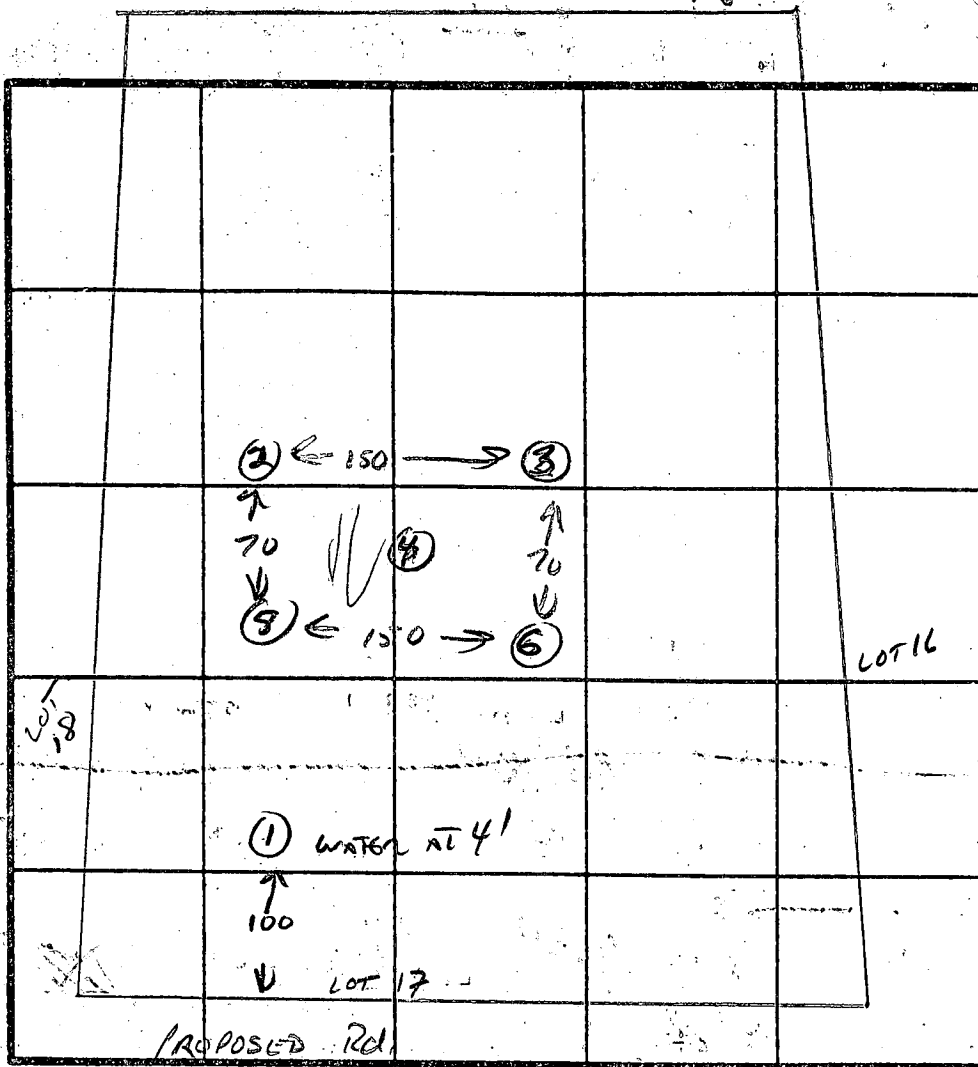 2 ← 150 → 3
↑ ↑
70 4 70
↓ ↓
5 ← 150 → 6
LOT 16
LOT 18
1 WATER AT 4'
↑
100
↓ LOT 17
PROPOSED Rd.